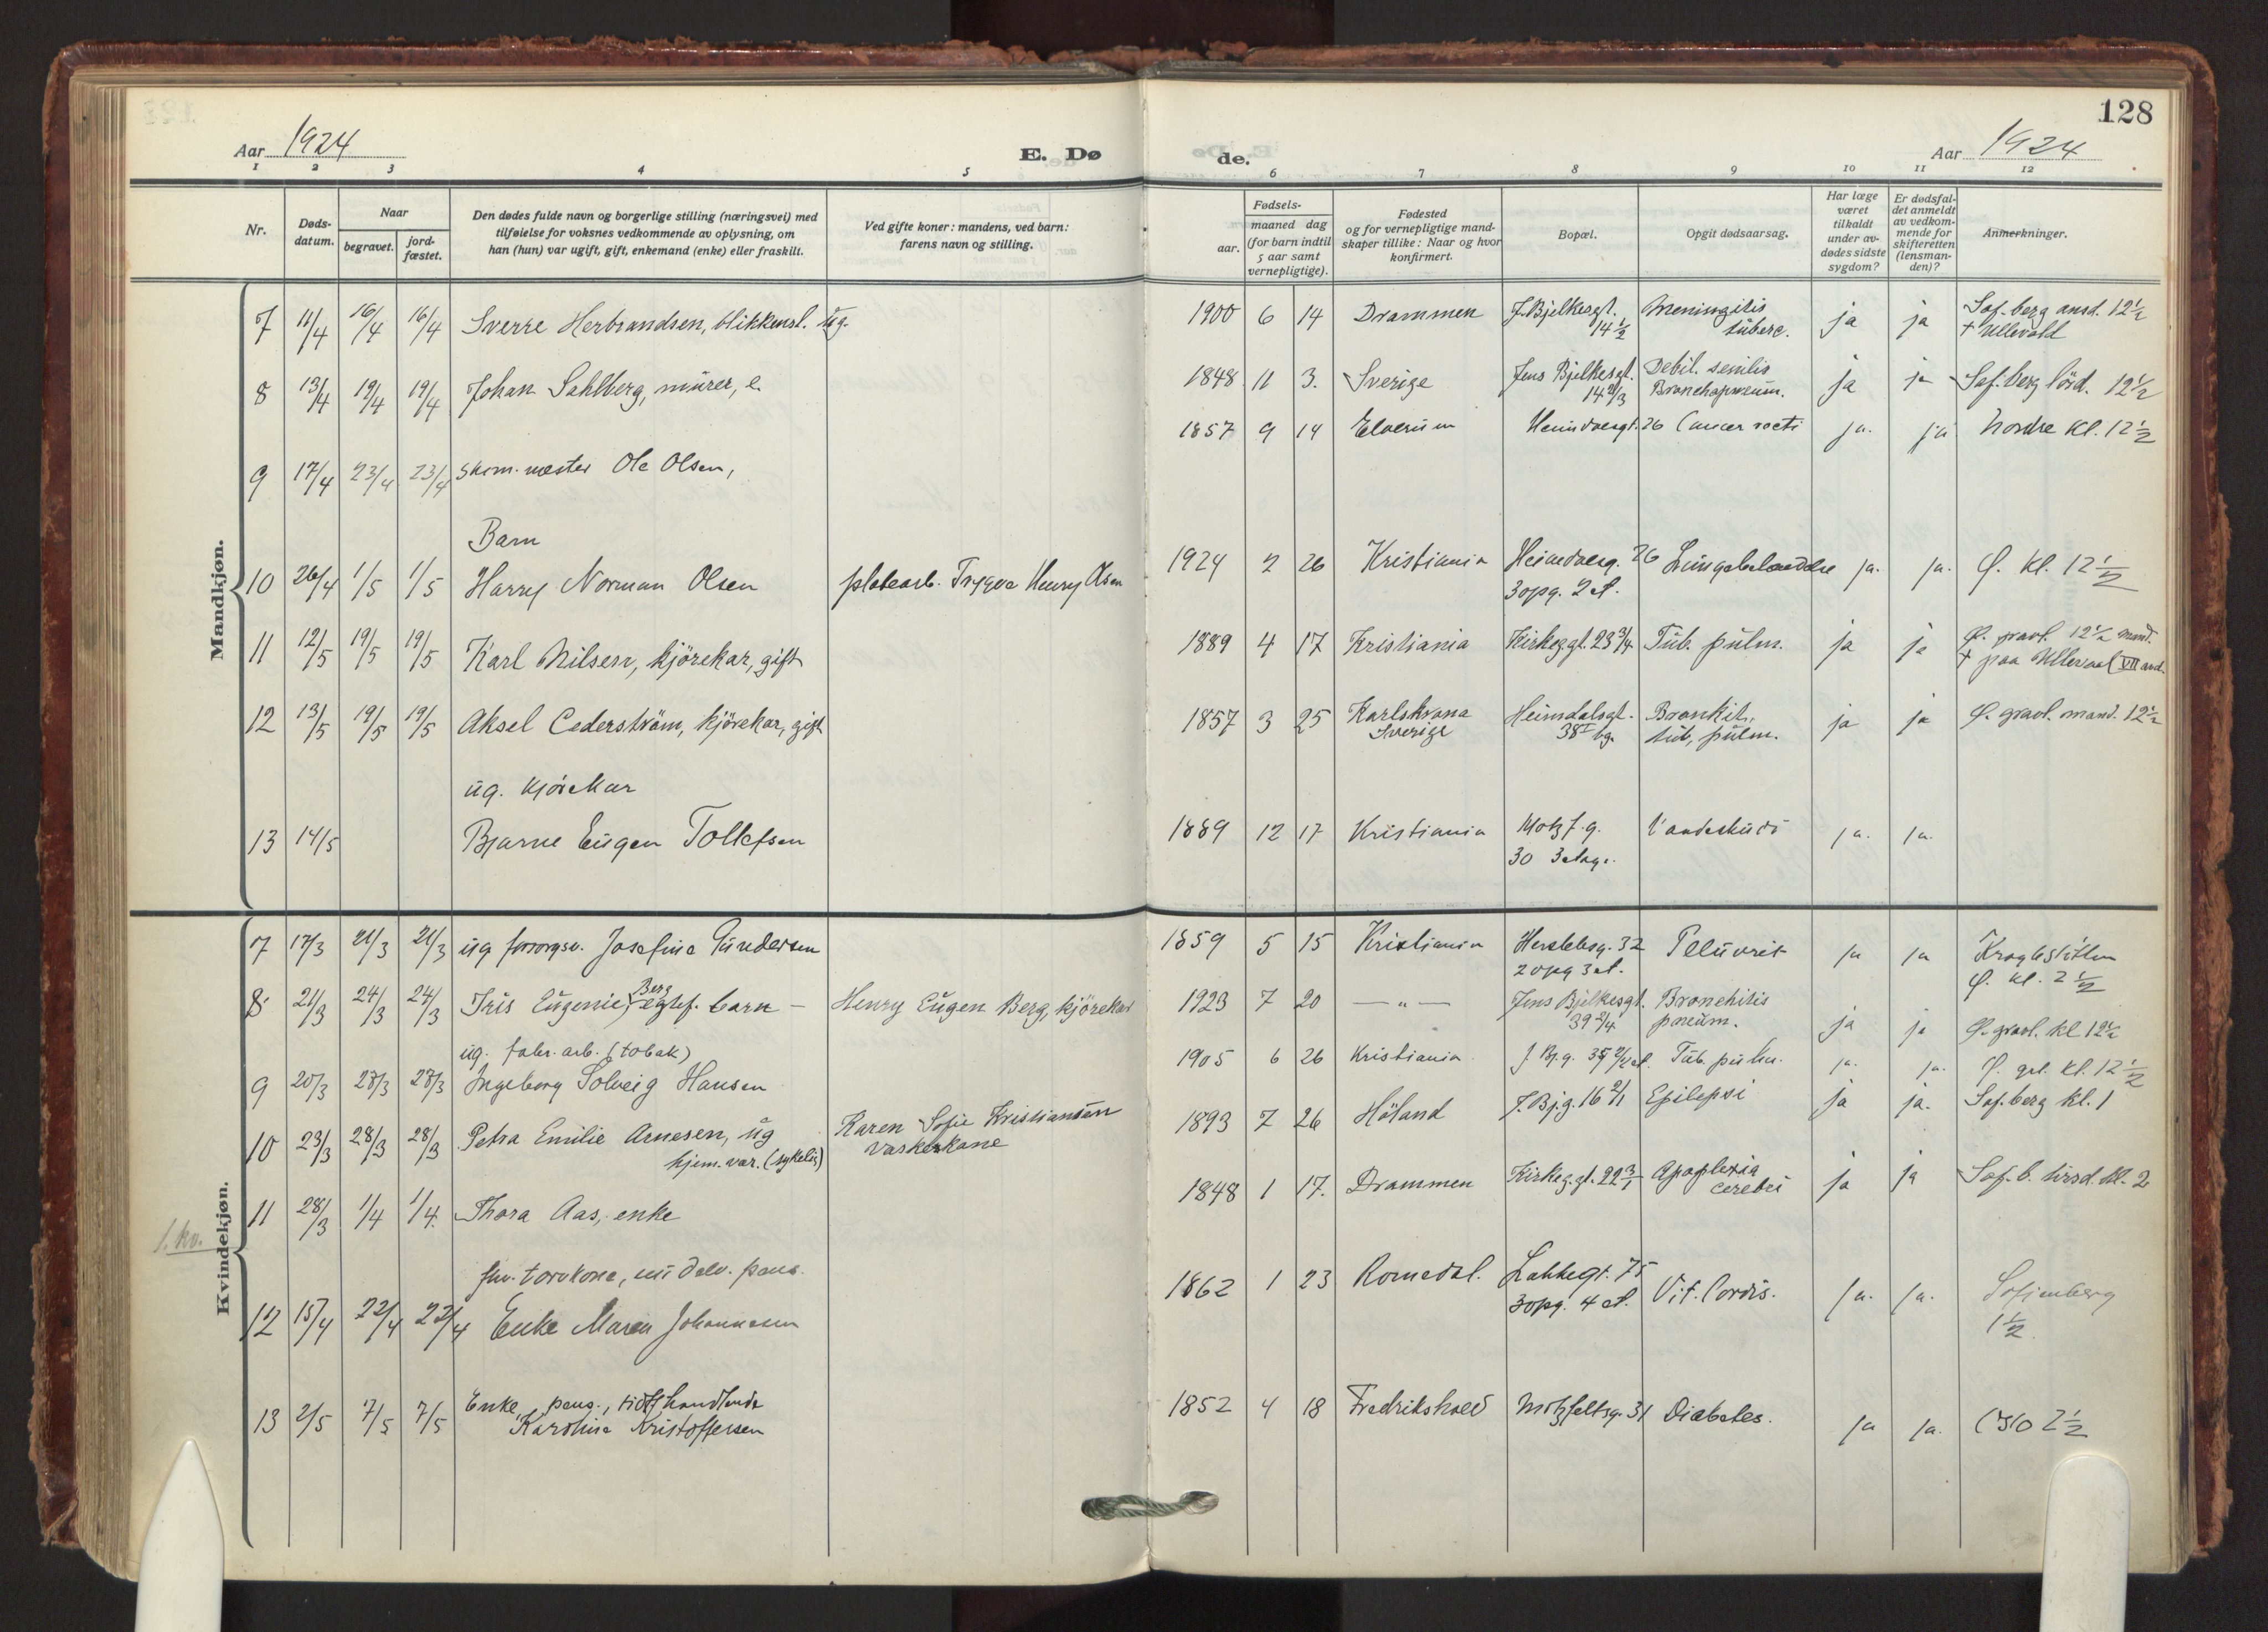 128
Aar 1924
E. Dø
de.
Aar 1924
1 2 3 4 5 6 7 8 9 10 11 12
Nr.
Døds-
datum.
Naar
begravet.
jord-
fæstet.
Den dødes fulde navn og borgerlige stilling (næringsvei) med
tilføielse for voksnes vedkommende av oplysning, om
han (hun) var ugift, gift, enkemand (enke) eller fraskilt.
Ved gifte koner: mandens, ved barn:
farens navn og stilling.
Fødsels-
aar.
maaned dag
(for barn indtil
5 aar samt
vernepligtige).
Fødested
og for vernepligtige mand-
skaper tillike: Naar og hvor
konfirmert.
Bopæl.
Opgit dødsaarsag.
Har læge
været
tilkaldt
under av-
dødes sidste
sygdom?
Er dødsfal-
det anmeldt
av vedkom-
mende for
skifteretten
(lensman-
den)?
Anmerkninger.
Mandkjøn.
7 11/4 16/4 16/4 Sverre Herbrandsen, blikkensl. ug. 1900 6 14 Drammen J. Bjelkesgt. 14 1/2 Meningitis tuberc. ja ja Sof. berg onsd. 12 1/2
+ Ullevold
8 13/4 19/4 19/4 Johan Sahlberg, murer, e. 1848 11 3. Sverige Jens Bjelkesgt. 14 2/3 Debil. senilis
Bronchopneum. ja ja Sof. berg lörd. 12 1/2
9 17/4 23/4 23/4 skom. mester Ole Olsen, 1857 9 14 Elverum Heimdalsgt. 26 Cancer recti ja. ja Nordre kl. 12 1/2
Barn
10 26/4 1/5 1/5 Harry Norman Olsen platearb. Trygve Henry Olsen 1924 2 26 Kristiania Heimdalsg. 26
3 opg. 2 et. Lungebetændelse ja. ja. Ø. kl. 12 1/2
11 12/5 19/5 19/5 Karl Nilsen, kjörekar, gift 1889 4 17 Kristiania Kirkeg.gt. 23 3/4 Tub. pulm. ja ja Ø. gravl. 12 1/2 mand.
+ paa Ullevaal VII avd.
12 13/5 19/5 19/5 Aksel Cederström, kjörekar, gift 1857 3 25 Karlskrona
Sverige Heimdalsgt. 38 I bg. Bronkit,
tub. pulm. ja ja Ø. gravl. mand. 12 1/2
ug. kjörekar
13 14/5 Bjarne Eugen Tollefsen 1889 12 17 Kristiania Motzf. g.
30 3 etage. ja. ja.
Kvindekjøn.
7 17/3 21/3 21/3 ug forsorgsu. Josefine Gundersen 1859 5 15 Kristiania Herslebsg. 32
2 opg 3 et. Pleurit ja ja
Ø. kl. 2 1/2
8 21/3 24/3 24/3 Iris Eugenie, Berg egtef. barn — Henry Eugen Berg, kjörekar 1923 7 20 — " — Jens Bjelkesgt. 39 2/4 Bronchitis
pneum. ja ja Ø. gravl. kl 12 1/2
ug. fabr. arb. (tobak)
9 20/3 27/3 27/3 Ingeborg Solveig Hansen 1905 6 26 Kristiania J. Bj. g. Tub. pulm. ja. ja. Ø. grl. kl. 12 1/2
10 23/3 28/3 28/3 Petra Emilie Arnesen, ug
hjem. var. (sykelig) Karen Sofie Kristiansen
vaskekone 1893 7 26 Höland J. Bj. g. 16 2/1 Epilepsi ja ja. Sof. berg kl. 1
1. kv.
11 28/3 1/4 1/4. Thora Aas, enke 1848 1 17. Drammen Kirkeg.gt. 22 3/1 Apoplexia
cerebri ja ja Sof. b. tirsd. kl. 2
fhv. torvkone,
12 15/4 22/4 22/4 Enke Maren Johannesen 1862 1 23 Romedal. Lakkegt. 75
3 opg. 4 et. Vit. Cordis. ja. ja. Sofienberg
1 1/2
Enke, pens., tidl handlende
13 2/5 7/5 7/5 Karoline Kristoffersen 1852 4 18 Fredrikshald Motzfeltsg. 31 Diabetes. ja ja. 2 1/2